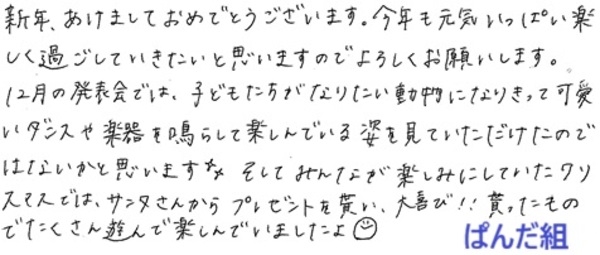 新年、あけましておめでとうございます。今年も元気いっぱい楽
しく過ごしていきたいと思いますのでよろしくお願いします。
12月の発表会では、子どもたちがなりたい動物になりきって可愛
いダンスや楽器を鳴らして楽しんでいる姿を見ていただけたので
はないかと思います そしてみんなが楽しみにしていたクリ
スマスでは、サンタさんからプレゼントを貰い、大喜び!! 貰ったもの
でたくさん遊んで楽しんでいましたよ
ぱんだ組